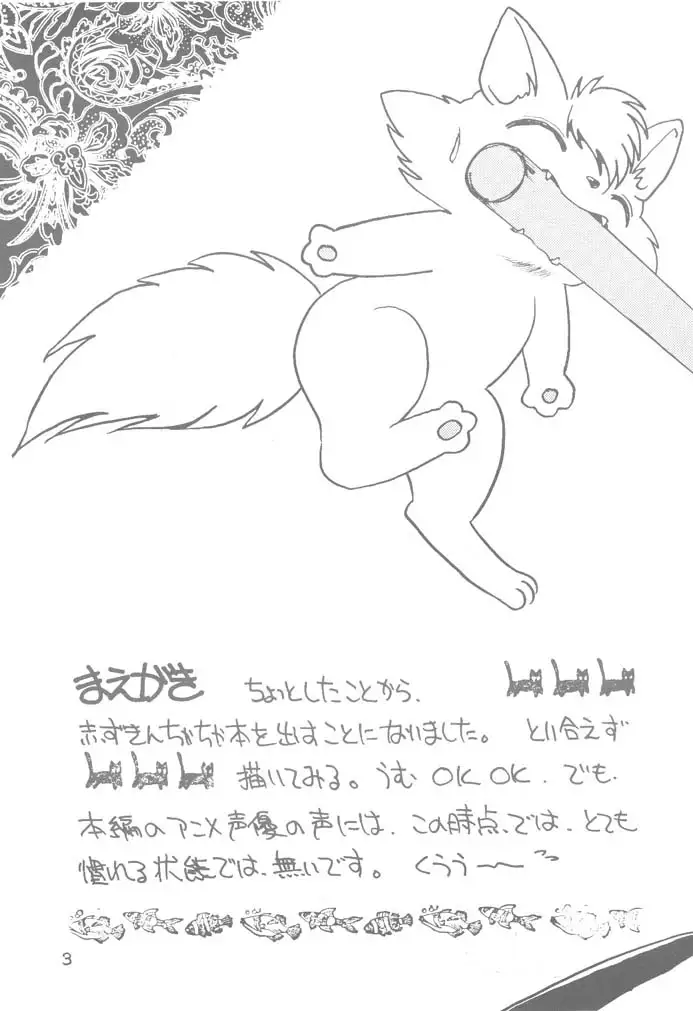 まえがき ちょっとしたことから、
赤ずきんちゃちゃ本を出すことになりました。 とりあえず
描いてみる。うむ OK OK. でも、
本編のアニメ声優の声には、この時点では、とても
慣れる状態では、無いです。 くうう〜〜
3